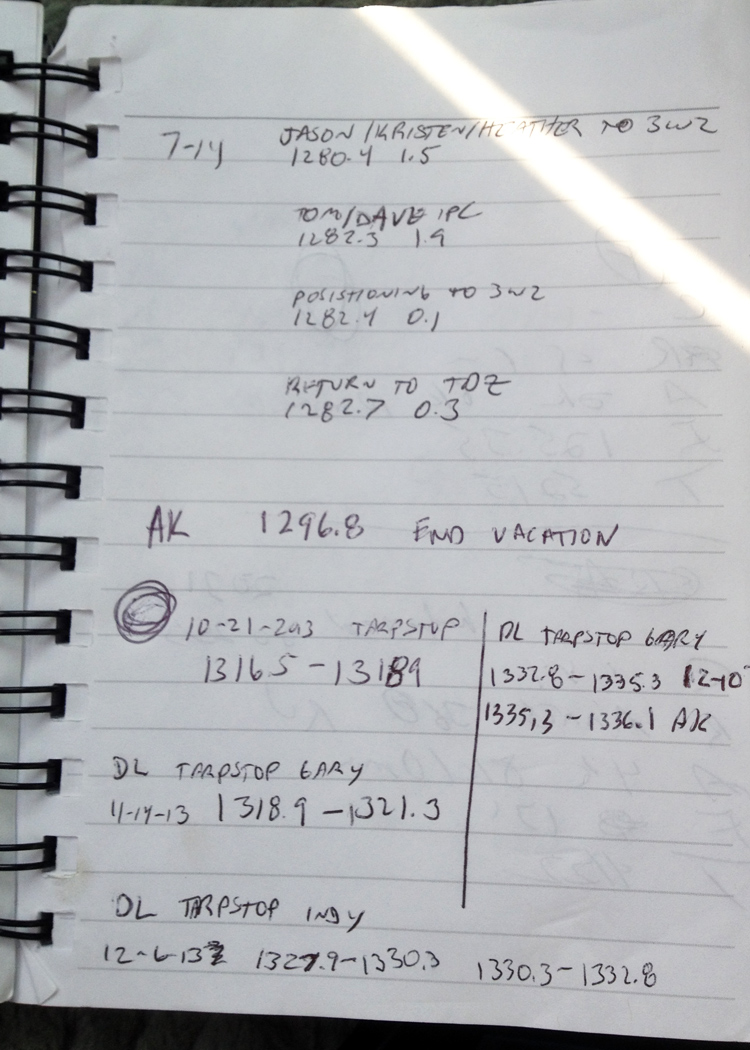 7-14 JASON/KRISTEN/HEATHER TO 3W2
1280.4 1.5
TOM/DAVE IPC
1282.3 1.9
POSISTIONING TO 3W2
1282.4 0.1
RETURN TO TDZ
1282.7 0.3
AK 1296.8 END VACATION
10-21-2013 TARPSTOP
1316.5-1318.9
DL TARPSTOP GARY
11-14-13 1318.9-1321.3
DL TARPSTOP INDY
12-6-13 1327.9-1330.3 1330.3-1332.8
DL TARPSTOP GARY
1332.8-1335.3 12-10
1335.3-1336.1 AK